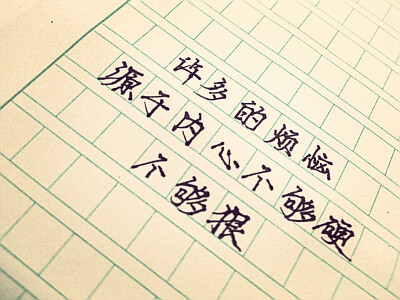 许多的烦恼
源于内心不够硬
不够狠